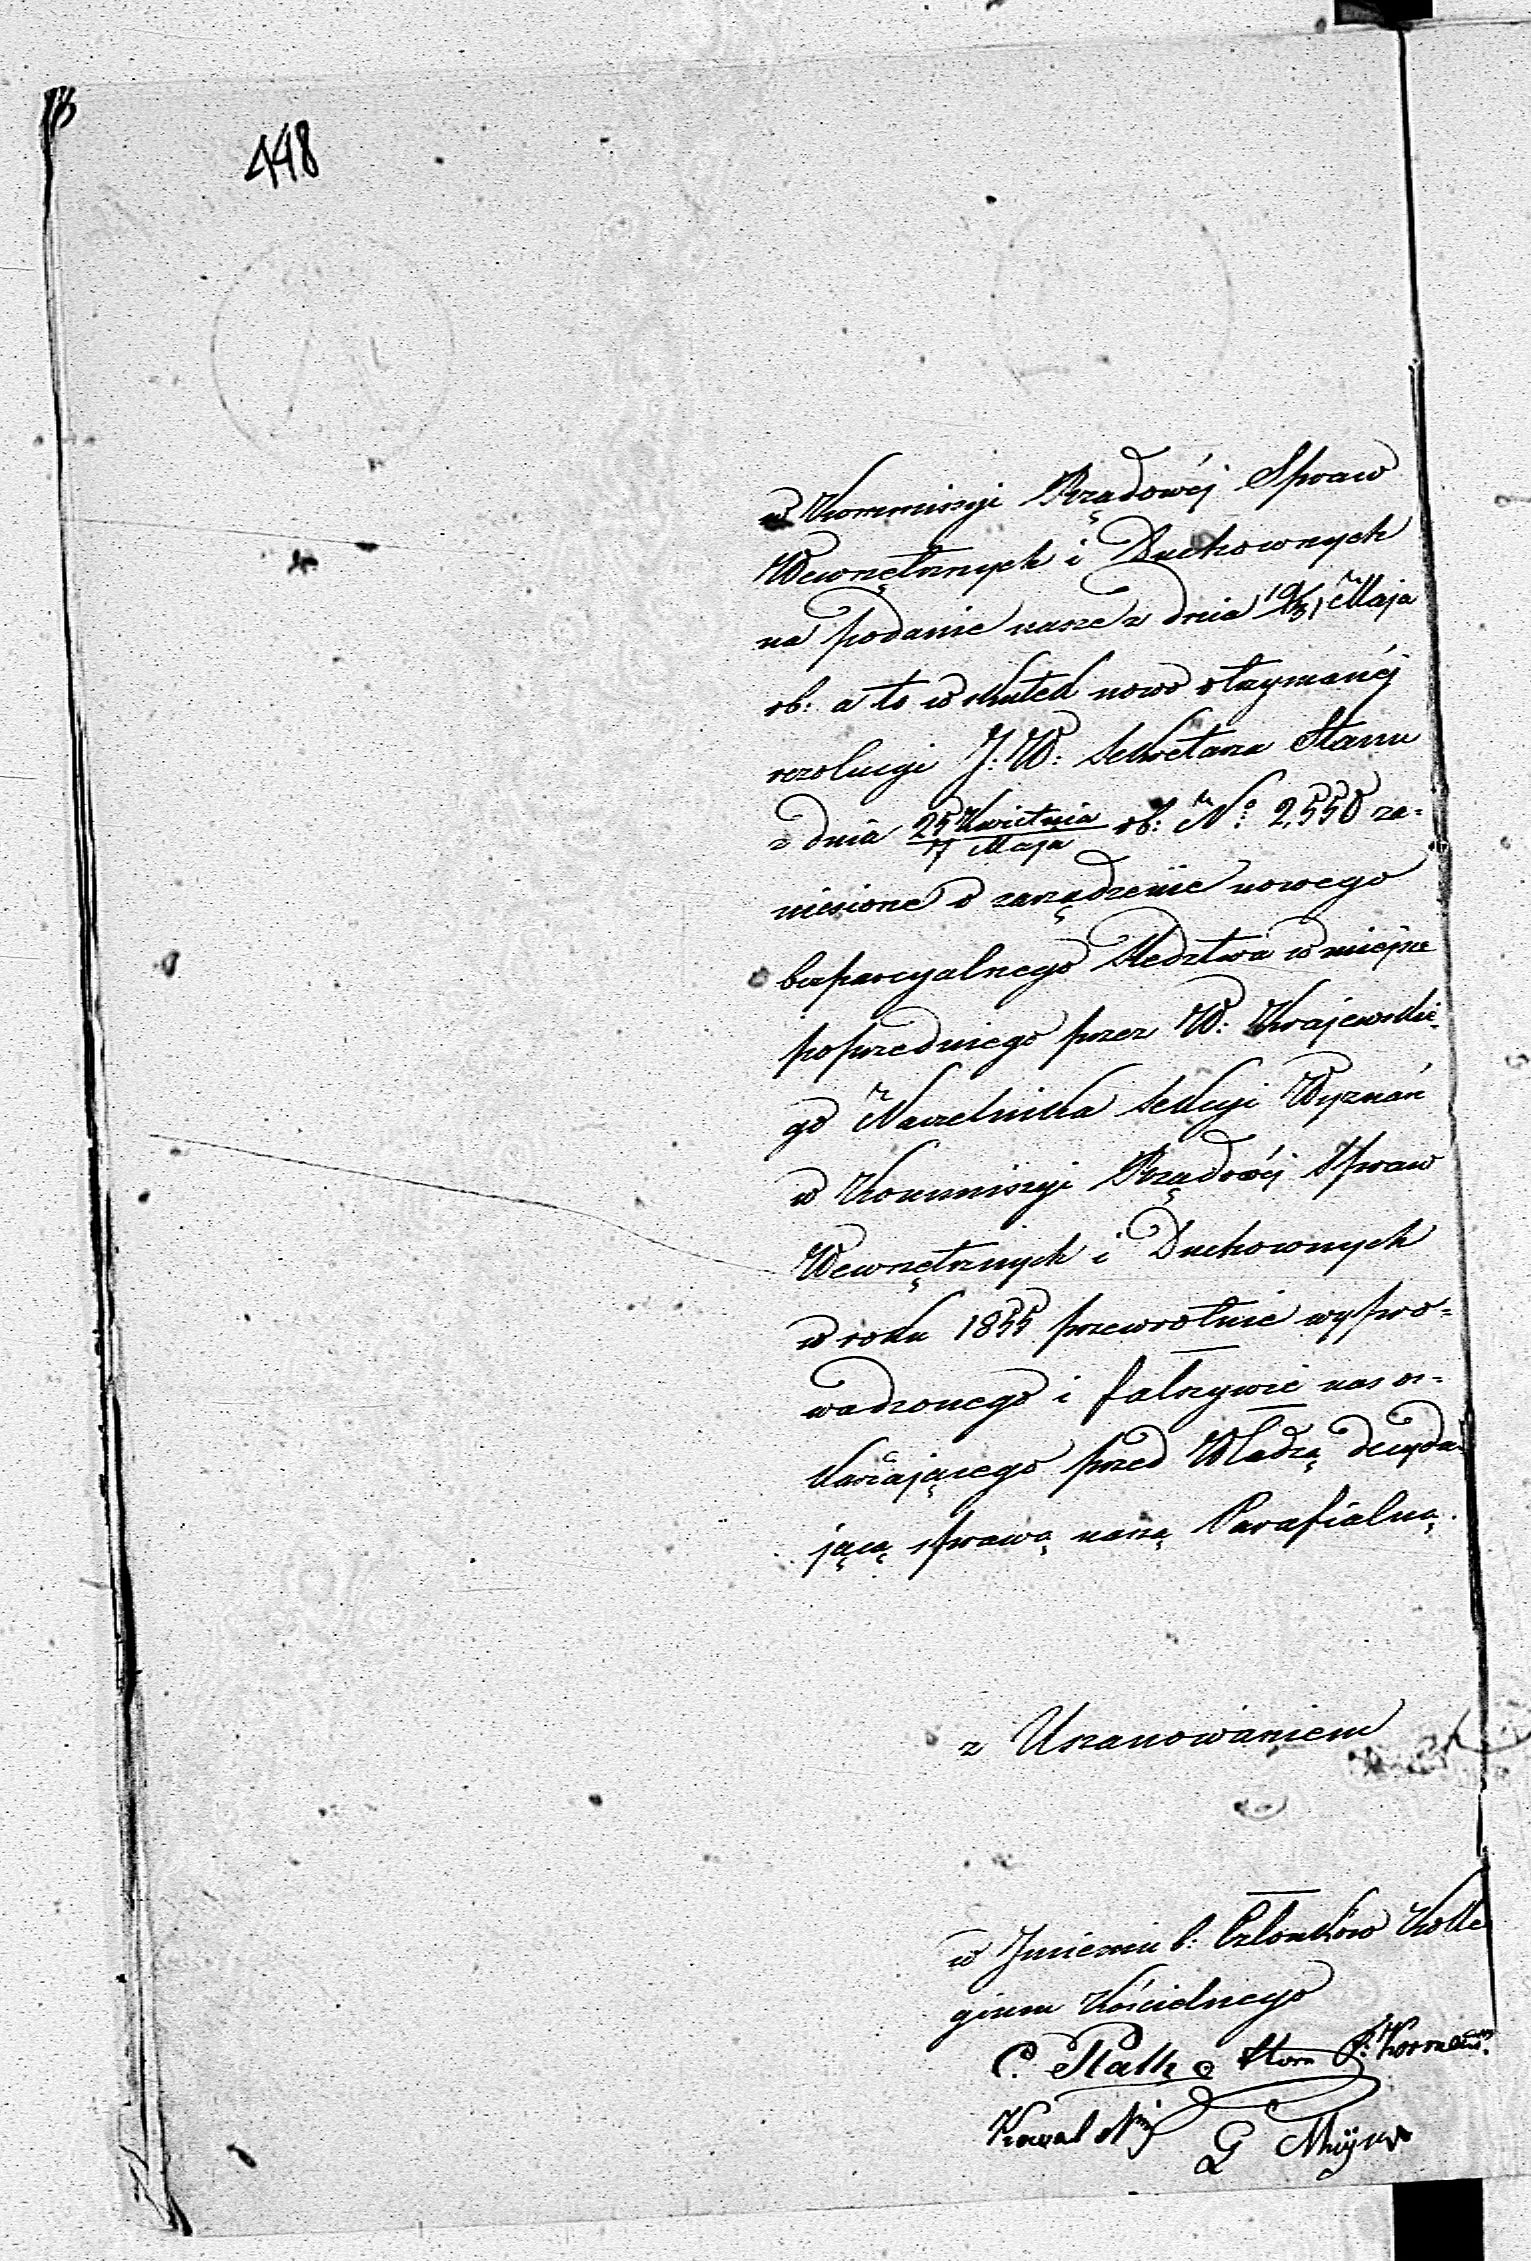 448
w Kommissyi Rządowéj Spraw
Wewnętrznych i Duchownych
na podanie nasze z dnia 19/31 Maja
rb: a to w skutek nowo otrzymanéj
rezolucyi J: W: Sekretarza Stanu
z dnia 25 Kwietnia/7 Maja rb: No 2,550 za-
niesione o zarządzenie nowego
bezparcyalnego śledztwa w miejsce
poprzedniego przez W: Krajewskie-
go Naczelnika Sekcyi Wyznań
w Kommissyi Rządowéj Spraw
Wewnętrznych i Duchownych
w roku 1855 przewrotnie wypro-
wadzonego i fałszywie nas os-
karżającego przed Władzą decydu-
jącą sprawą naszą Parafialną.
z Uszanowaniem
w Jmieniu b: Członków Kolle
gium Kościelnego
C. Kowalski
G